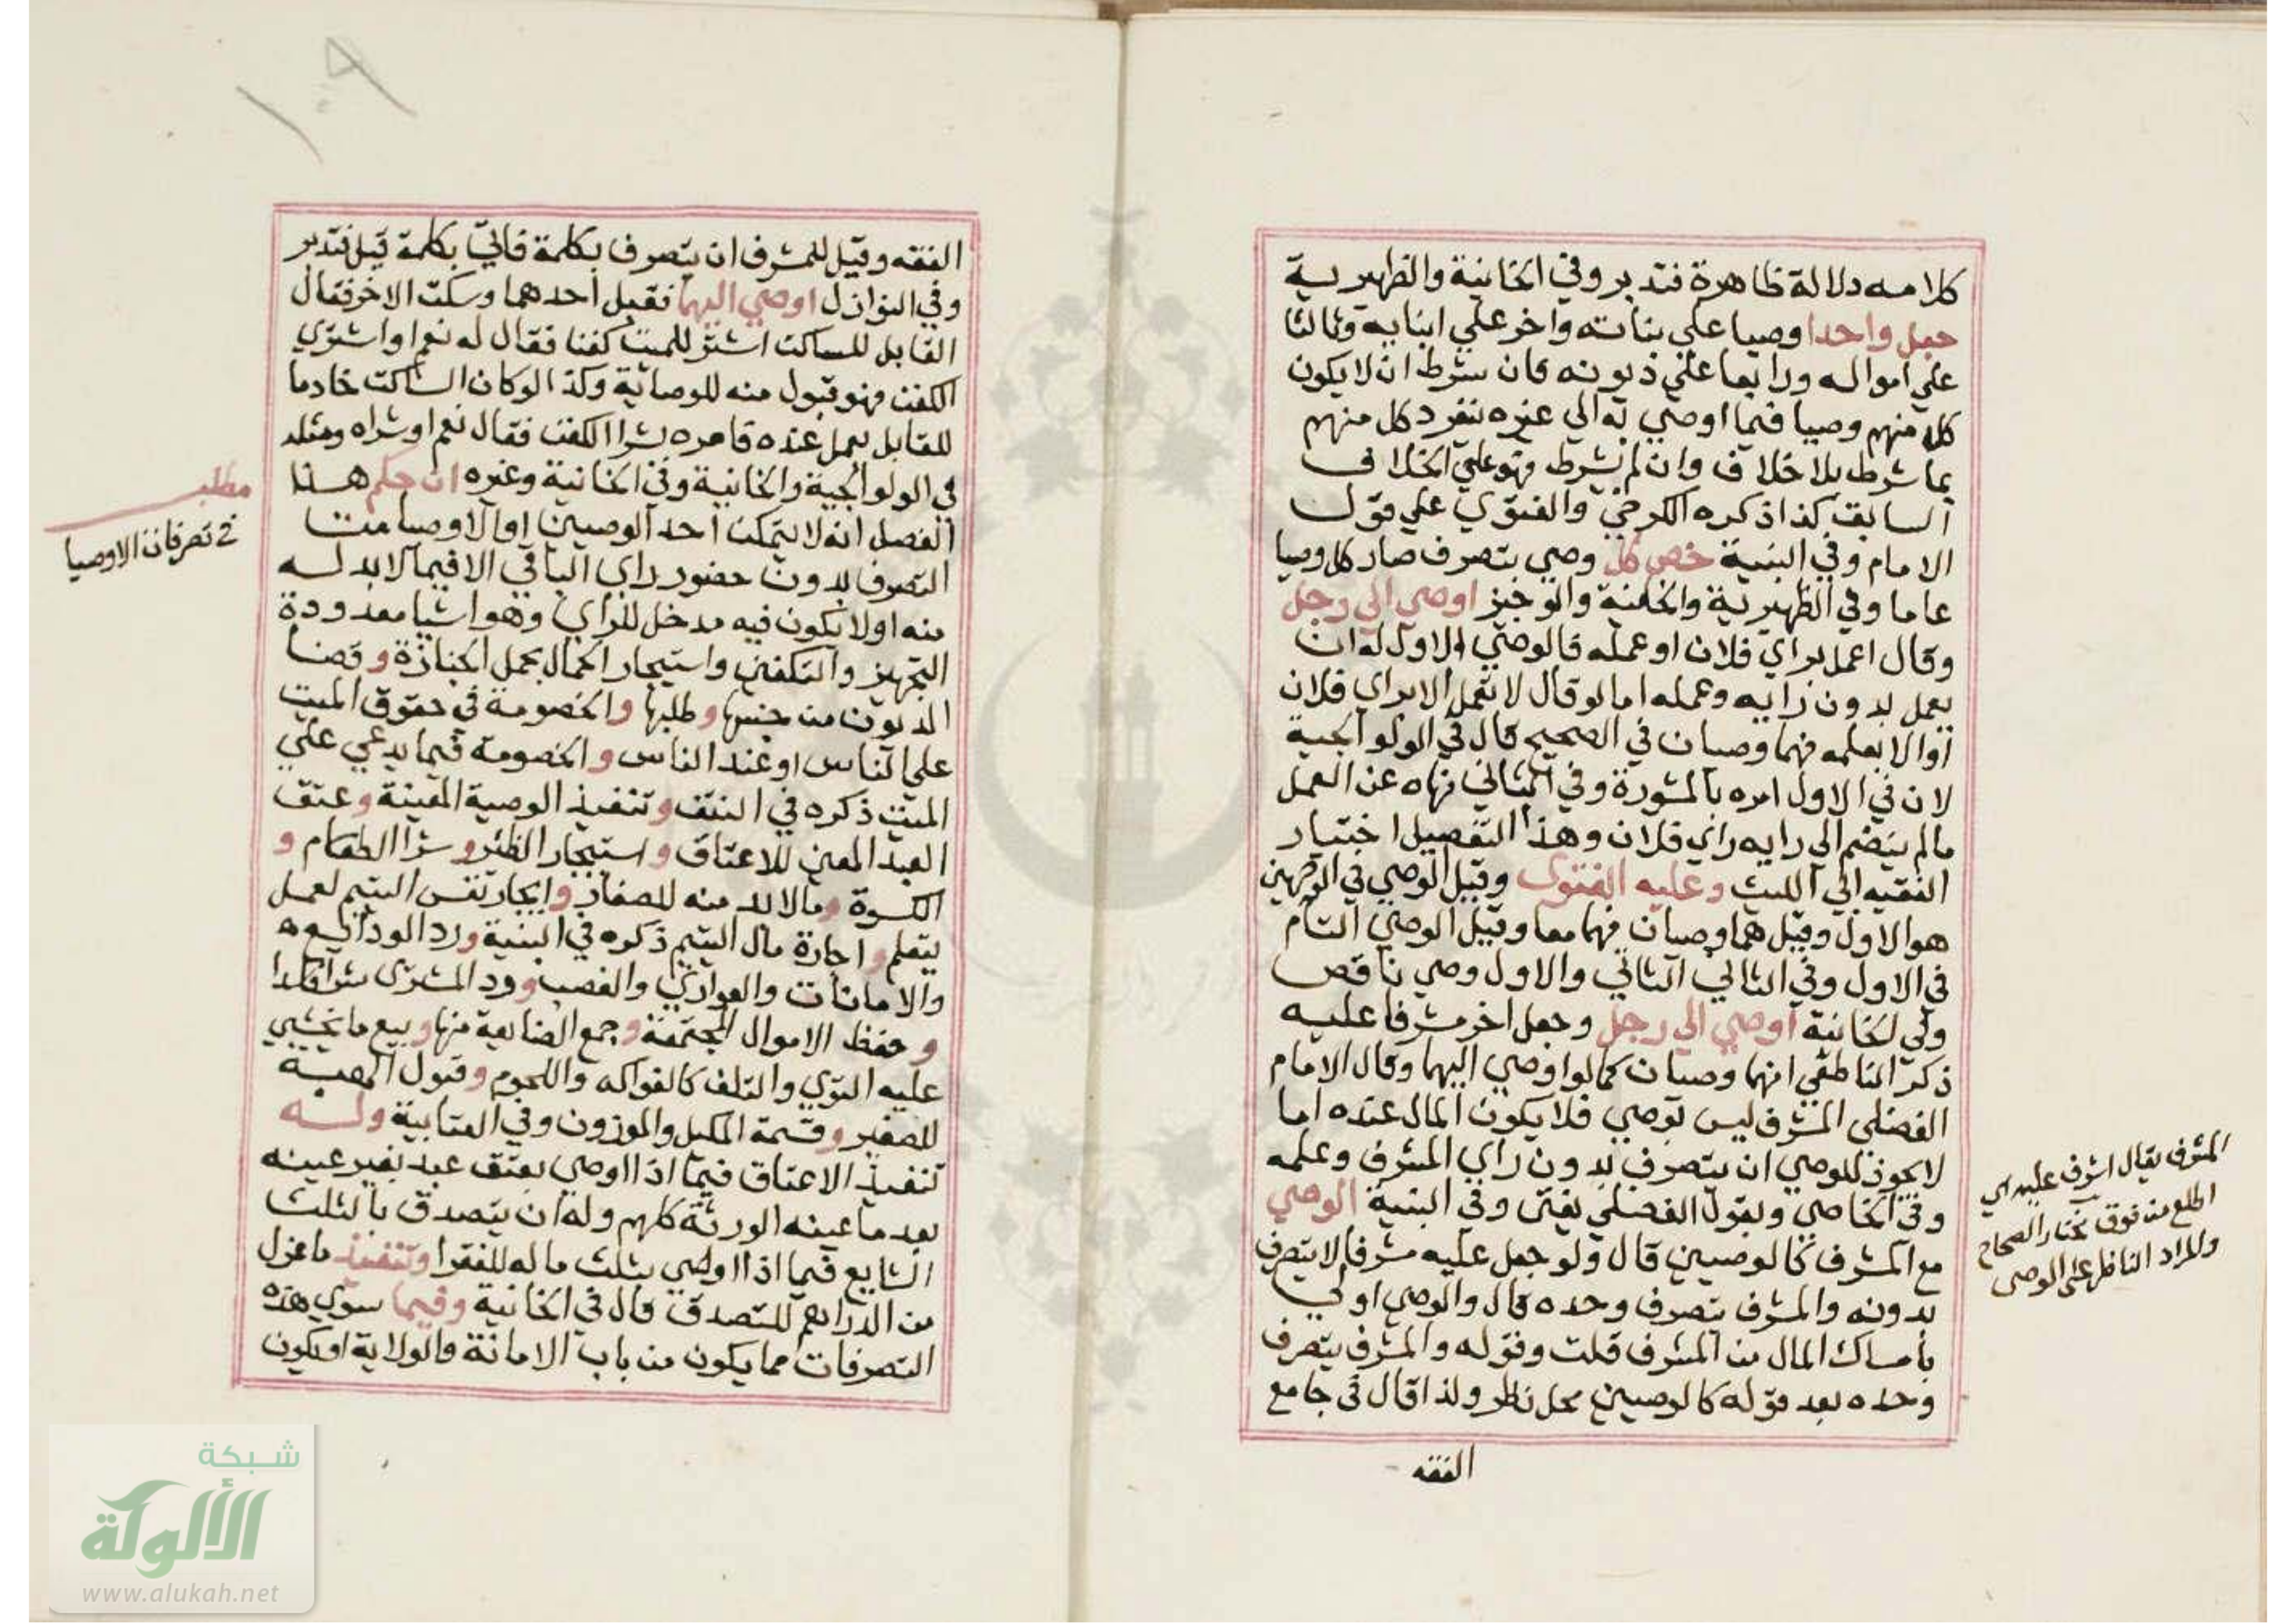 كلامه دلالة ظاهرة فتدبر وفي الخانية والظهيرية
جعل واحدا وصيا على بناته واخر علي ابنايه وثالثا
علي امواله ورابعا علي ديونه فان شرط ان لا يكون
كل منهم وصيا فيما اوصي به الي غيره تفرد كل منهم
بما شرط بلا خلاف وان لم يشرط فهو علي الخلاف
السابق كذا ذكره الكرخي والفتوي علي قول
الامام وفي البنية خص كل وصي بتصرف صار كل وصيا
عاما وفي الظهيرية والخانية والوجيز اوصي الي رجل
وقال اعمل براي فلان او عمله فالوصي الاول له ان
يعمل بدون رايه وعمله اما لو قال لا تعمل الا براي فلان
او الا بعلمه فهما وصيان في الصحيح قال في الولوالجية
لان في الاول امره بالمشورة وفي الثاني نهاه عن العمل
مالم ينضم الي رايه راي فلان وهذا التفصيل اختيار
الفقيه ابي الليث وعليه الفتوى وقيل الوصي في الوجهين
هو الاول وقيل هما وصيان فيهما معا وقيل الوصي التام
في الاول وفي الثاني الثاني والاول وصي ناقص
وفي الخانية اوصي الي رجل وجعل اخر مشرفا عليه
ذكر الناطقي انهما وصيان كما لو اوصي اليهما وقال الامام
الفضلي المشرف ليس بوصي فلا يكون المال عنده اما
لا يجوز للوصي ان يتصرف بدون راي المشرف وعلمه
وفي الخاصي وبقول الفضلي يفتى وفي البنية الوصي
مع المشرف كالوصيين قال ولو جعل عليه مشرفا لا يتصرف
بدونه والمشرف يتصرف وحده قال والوصي اولي
بامساك المال من المشرف قلت وقوله والمشرف يتصرف
وحده بعد قوله كالوصيين محل نظر ولذا قال في جامع
الفقه
المشرف يقال اشرف عليه اي
اطلع من فوق مختار الصحاح
والمراد الناظر على الوصى
١٠٩
الفقه وقيل للمشرف ان يتصرف بكلمة فاتي بكلمة قيل فتدبر
وفي النوازل اوصي اليهما فقبل احدهما وسكت الاخر فقال
القابل للساكت اشتر للميت كفنا فقال له نعم او اشتري
الكفن فهو قبول منه للوصائة وكذا لو كان الساكت خادما
للقابل يعمل عنده فامره بشرا الكفن فقال نعم او شراه ومثله
في الولوالجية والخانية وفي الخانية وغيره ان حكم هذا
الفصل انه لا يتمكن احد الوصيين او الاوصيا من
التصرف بدون حضور راي الباقي الا فيما لا بد له
منه او لا يكون فيه مدخل للراي وهو اشيا معدودة
التجهيز والتكفين واستيجار الحمال بحمل الجنازة وقضا
الديون من جنسها وطلبها والخصومة في حقوق الميت
علي الناس او عند الناس والخصومة فيما يدعي علي
الميت ذكره في النتف وتنفيذ الوصية المعينة وعتق
العبد المعين للاعتاق واستيجار الظئر وشرا الطعام و
الكسوة ومالا بد منه للصغار وايجار نفس اليتيم لعمل
يتعلم واجارة مال اليتيم ذكره في البنية ورد الودائع
والامانات والعواري والغصب ورد المشترى شرا فاسدا
وحفظ الاموال المجتمعة وجمع الضايعة منها وبيع ما يخشي
عليه التوي والتلف كالفواكه واللحوم وقبول الهبة
للصغير وقسمة المكيل والموزون وفي العتابية وله
تنفيذ الاعتاق فيما اذا اوصي بعتق عبد بغير عينه
بعد ما عينه الورثة كلهم وله ان يتصدق بالثلث
الشايع فيما اذا اوصي بثلث ماله للفقرا وتنفيذ ما عزل
من الدراهم للتصدق قال في الخانية وفيما سوي هذه
التصرفات مما يكون من باب الامانة والولاية او يكون
مطلب
في تصرفات الاوصيا
شبكة
الألوكة
www.alukah.net